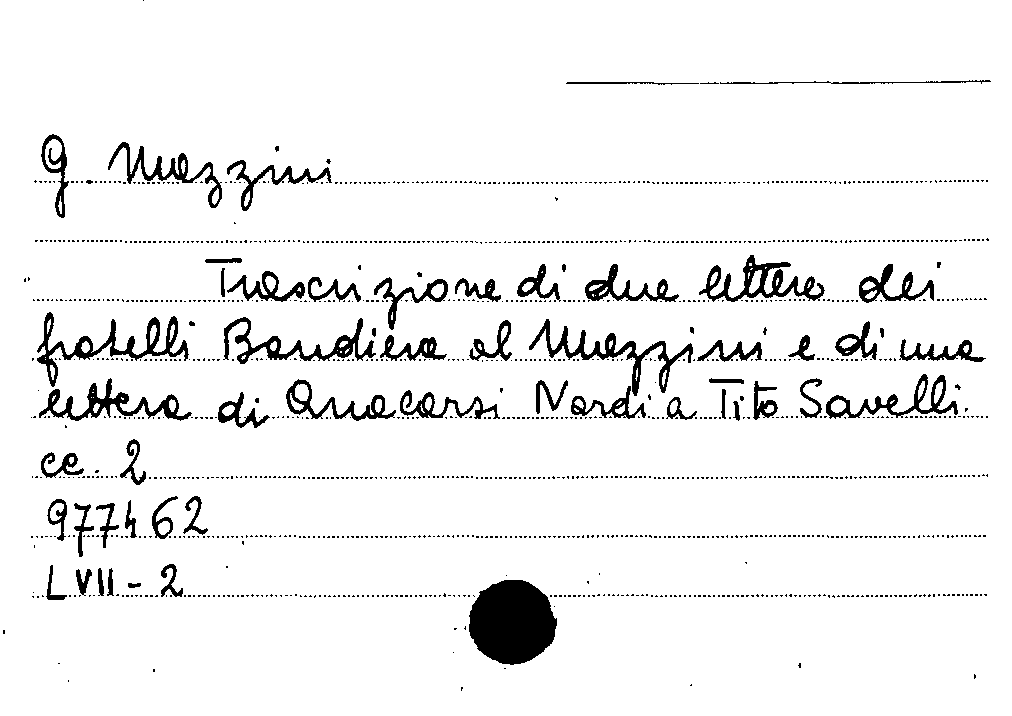 G. Mazzini
Trascrizione di due lettere dei
fratelli Bandiera al Mazzini e di una
lettera di Anacarsi Nardi a Tito Savelli.
cc. 2
977462
LVII - 2